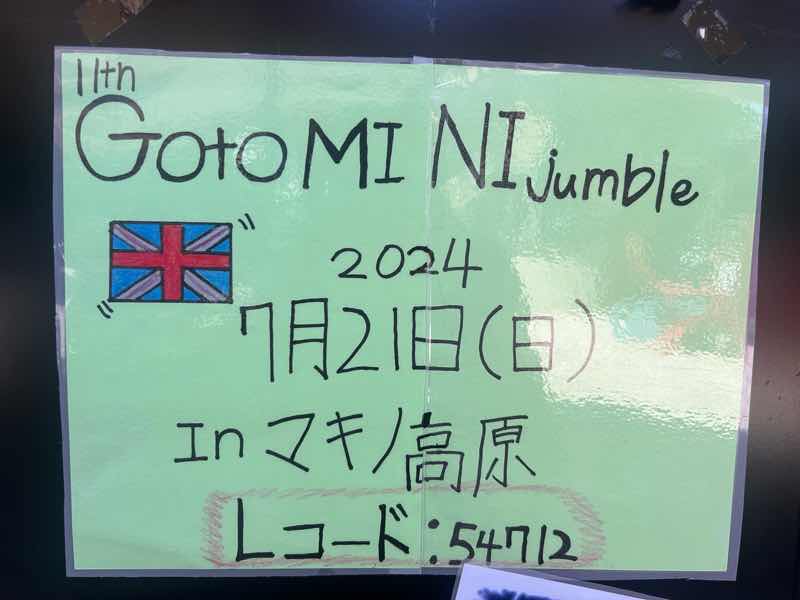 11th
Goto MINI jumble
2024
7月21日(日)
In マキノ高原
Lコード:54712